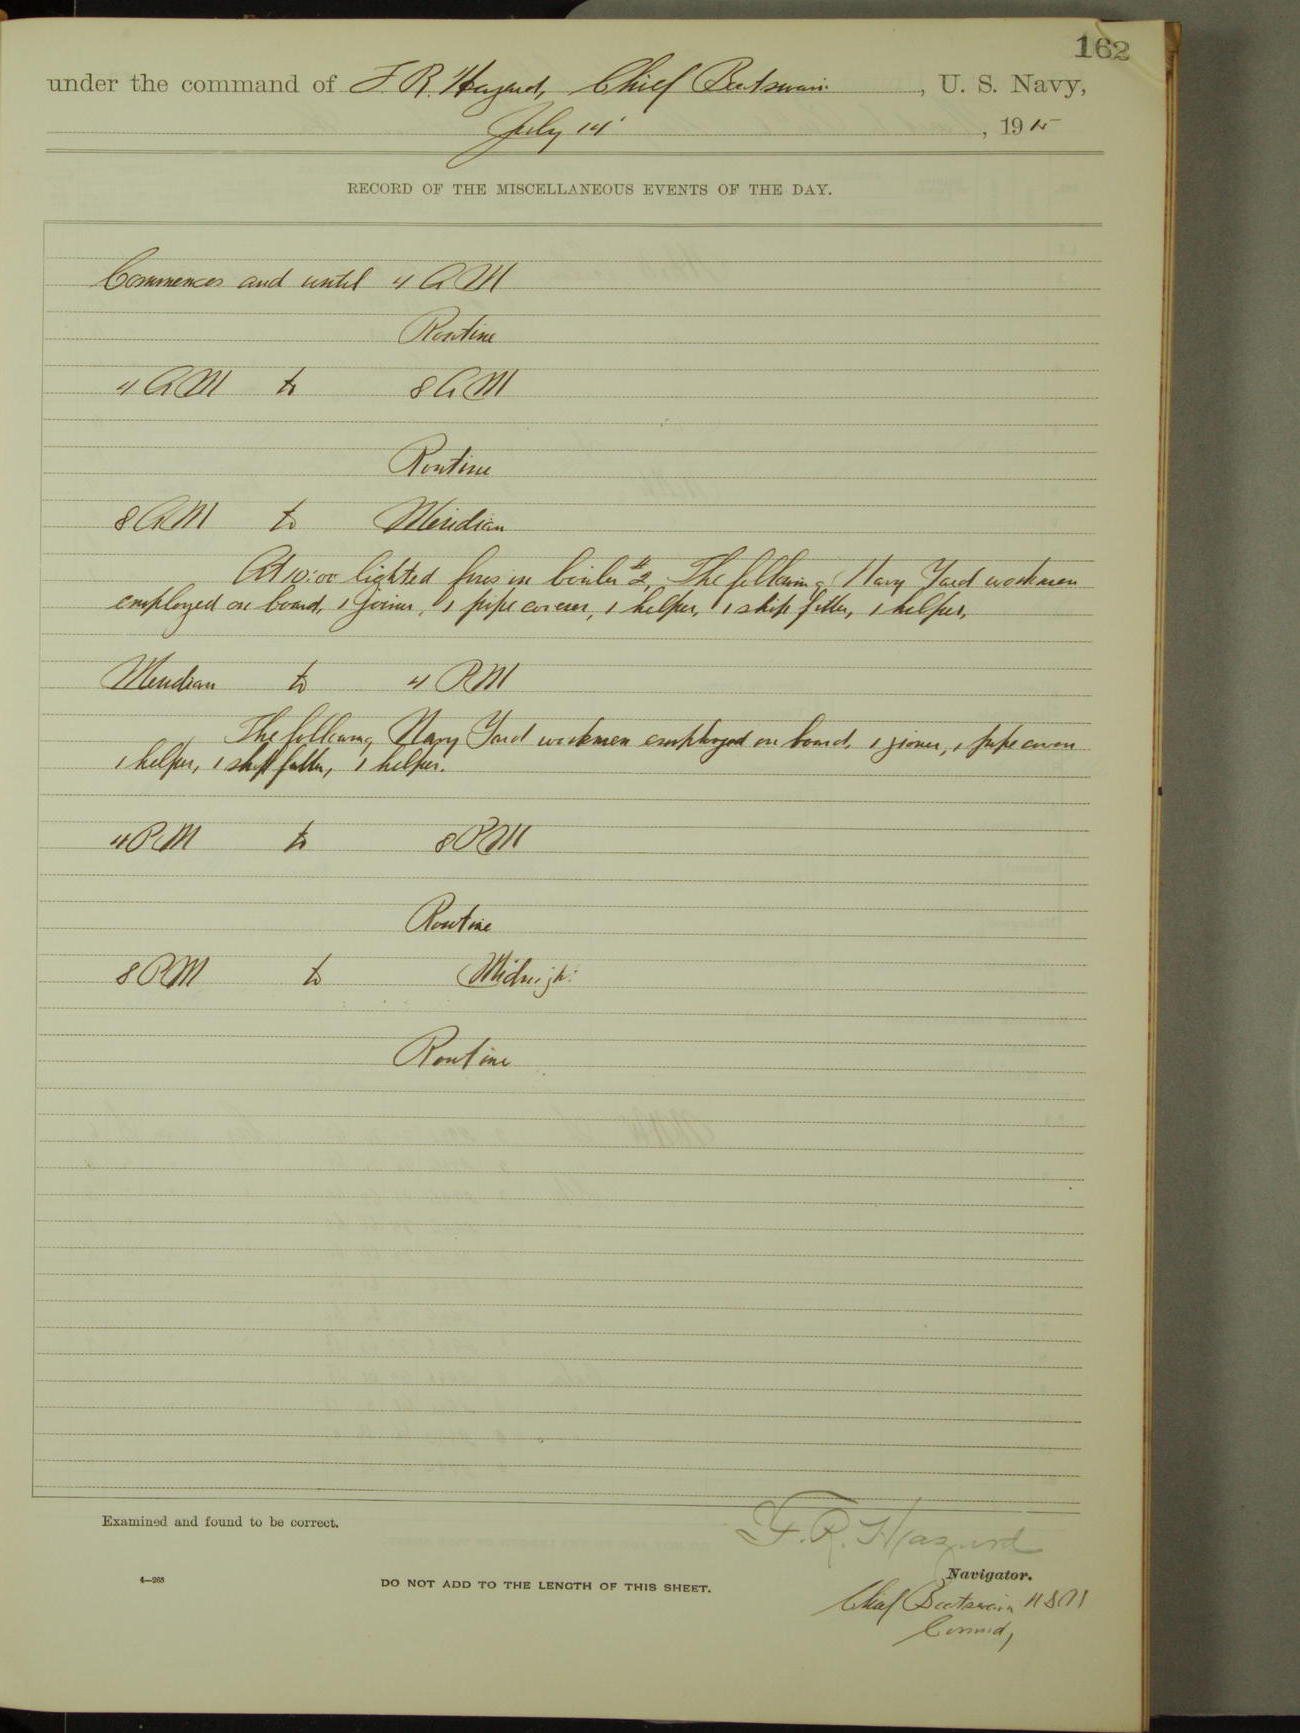 162
under the command of F. R. Hazard, Chief Boatswain, U. S. Navy,
July 14, 1915
RECORD OF THE MISCELLANEOUS EVENTS OF THE DAY.
Commences and until 4 AM
Routine
4 AM to 8 AM
Routine
8 AM to Meridian
At 10:00 lighted fires in boiler #2. The following Navy Yard workmen
employed on board, 1 joiner, 1 pipe coverer, 1 helper, 1 ship fitter, 1 helper,
Meridian to 4 PM
The following Navy Yard workmen employed on board. 1 joiner, 1 pipe coverer
1 helper, 1 ship fitter, 1 helper.
4 PM to 8 PM
Routine
8 PM to Midnight
Routine
Examined and found to be correct.
F. R. Hazard
Navigator.
4—263
DO NOT ADD TO THE LENGTH OF THIS SHEET.
Chief Boatswain USN
Commd,